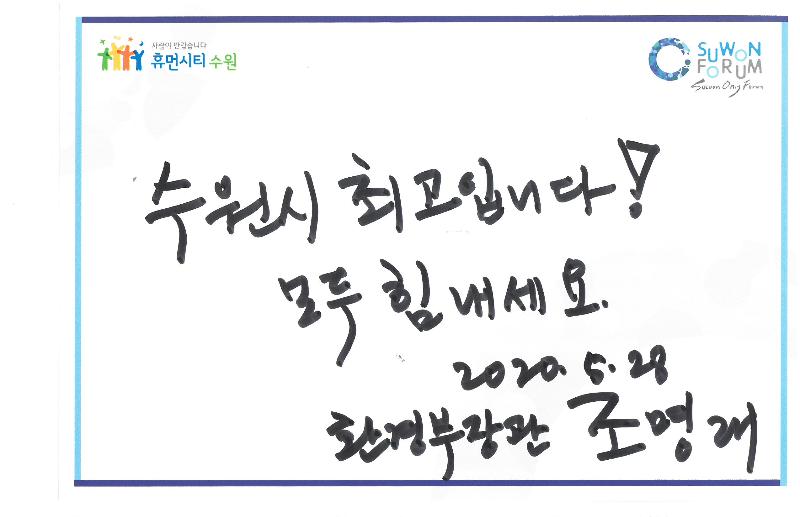 사람이 반갑습니다
휴먼시티 수원
SUWON
FORUM
Suwon Only Forum
수원시 최고입니다!
모두 힘내세요.
2020. 5. 28
환경부장관 조명래